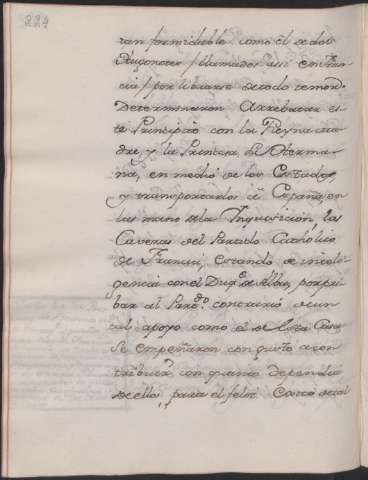 224
tan formidable como el de los
Hugonotes / llamados assi en Fran
cia / por librarse de todo temor.
Determinaron Arrebatar es
te Principe con la Reyna Ma
dre, y la Princesa su Herma
na, en medio de los Estados
y transportarlos a España en
las manos de la Inquisicion, las
Cavezas del Partido Catholico
de Francia, estando de inteli
gencia con el Duqe. de Alba, por pri
bar al Pardo. contrario de un
tal apoyo como el de esta Casa
Se empeñaron con gusto a con
tribuir con quanto dependia
de ellos, para el feliz Exito de tal